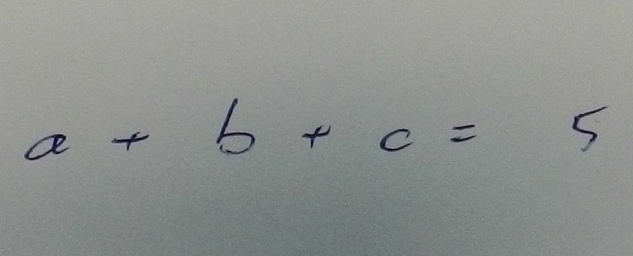 a + b + c = 5